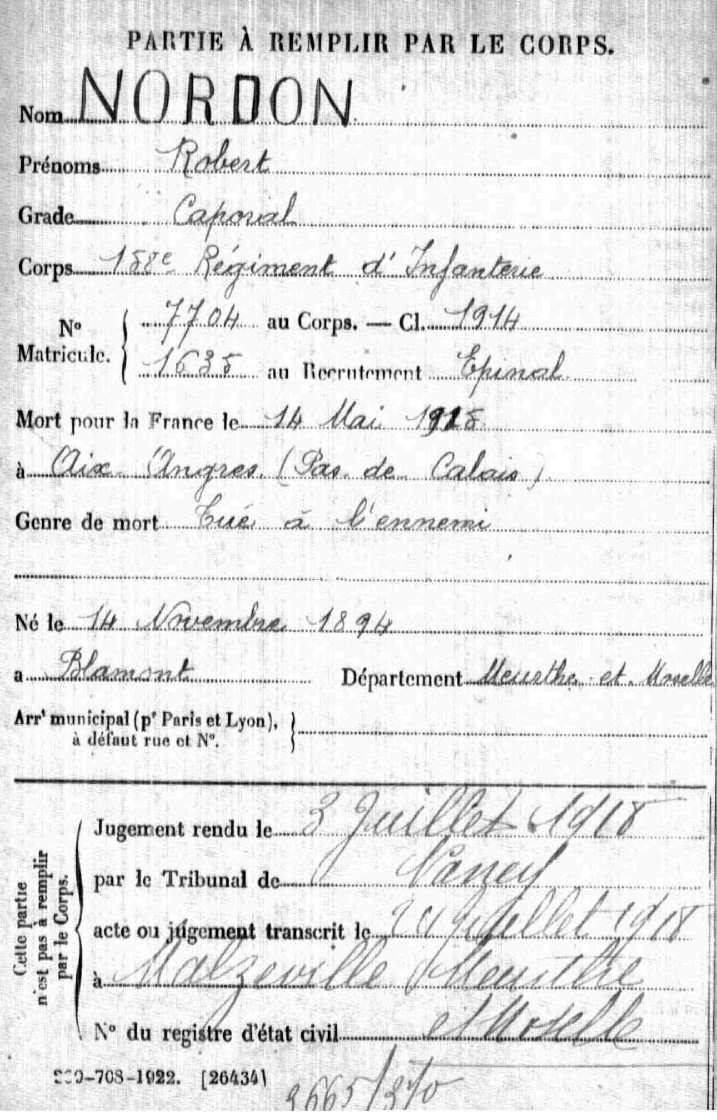 PARTIE À REMPLIR PAR LE CORPS.
Nom NORDON
Prénoms Robert
Grade Caporal
Corps 158e Régiment d'Infanterie
No Matricule. { 7704 au Corps. — Cl. 1914
1635 au Recrutement Epinal
Mort pour la France le 14 Mai 1915
à Aix-Angres (Pas. de Calais)
Genre de mort Tué à l'ennemi
Né le 14 Novembre 1894
a Blamont Département Meurthe et. Moselle
Arrt municipal (pr Paris et Lyon), }
à défaut rue et No.
Cette partie n'est pas à remplir par le Corps. {
Jugement rendu le 3 Juillet 1918
par le Tribunal de Nancy
acte ou jugement transcrit le Juillet 1918
à Malzeville Meurthe
No du registre d'état civil et Moselle
-708-1922. [26434]
3665/370